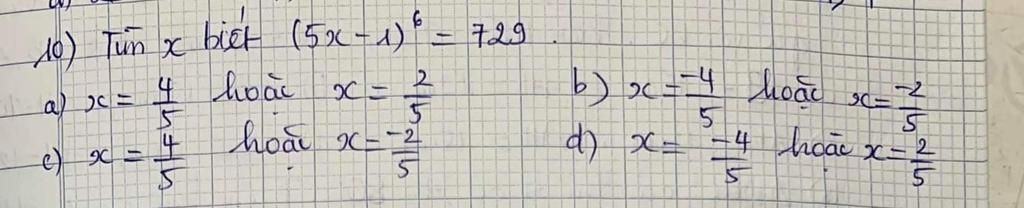 10) Tìm x biết (5x-1)^6 = 729.
a) x = 4/5 hoặc x = 2/5 b) x = -4/5 hoặc x = -2/5
c) x = 4/5 hoặc x = -2/5 d) x = -4/5 hoặc x = 2/5